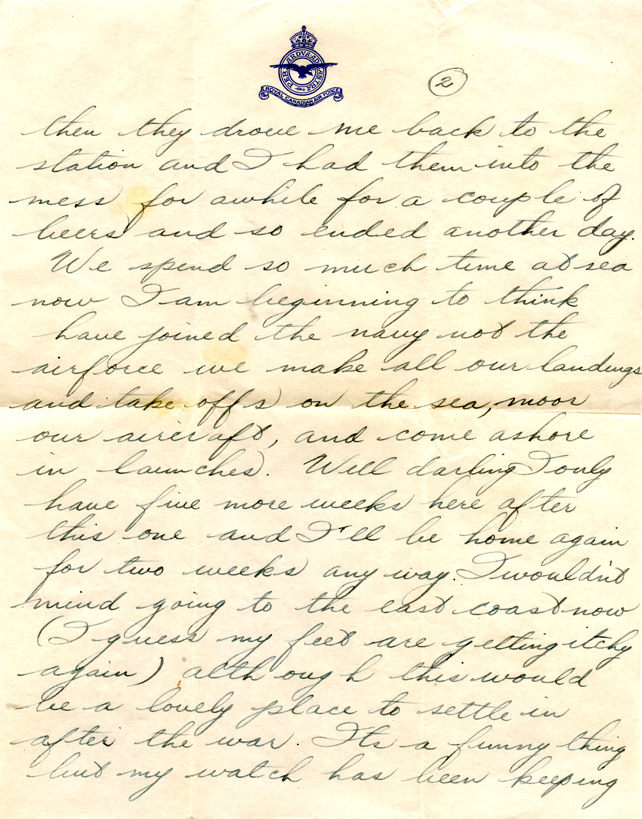 PER ARDUA AD ASTRA
ROYAL CANADIAN AIR FORCE
2
then they drove me back to the
station and I had them into the
mess for awhile for a couple of
beers and so ended another day.
We spend so much time at sea
now I am beginning to think
have joined the navy not the
airforce we make all our landings
and take offs on the sea, moor
our aircraft, and come ashore
in launches. Well darling I only
have five more weeks here after
this one and I'll be home again
for two weeks any way. I wouldn't
mind going to the east coast now
(I guess my feet are getting itchy
again) although this would
be a lovely place to settle in
after the war. Its a funny thing
but my watch has been keeping